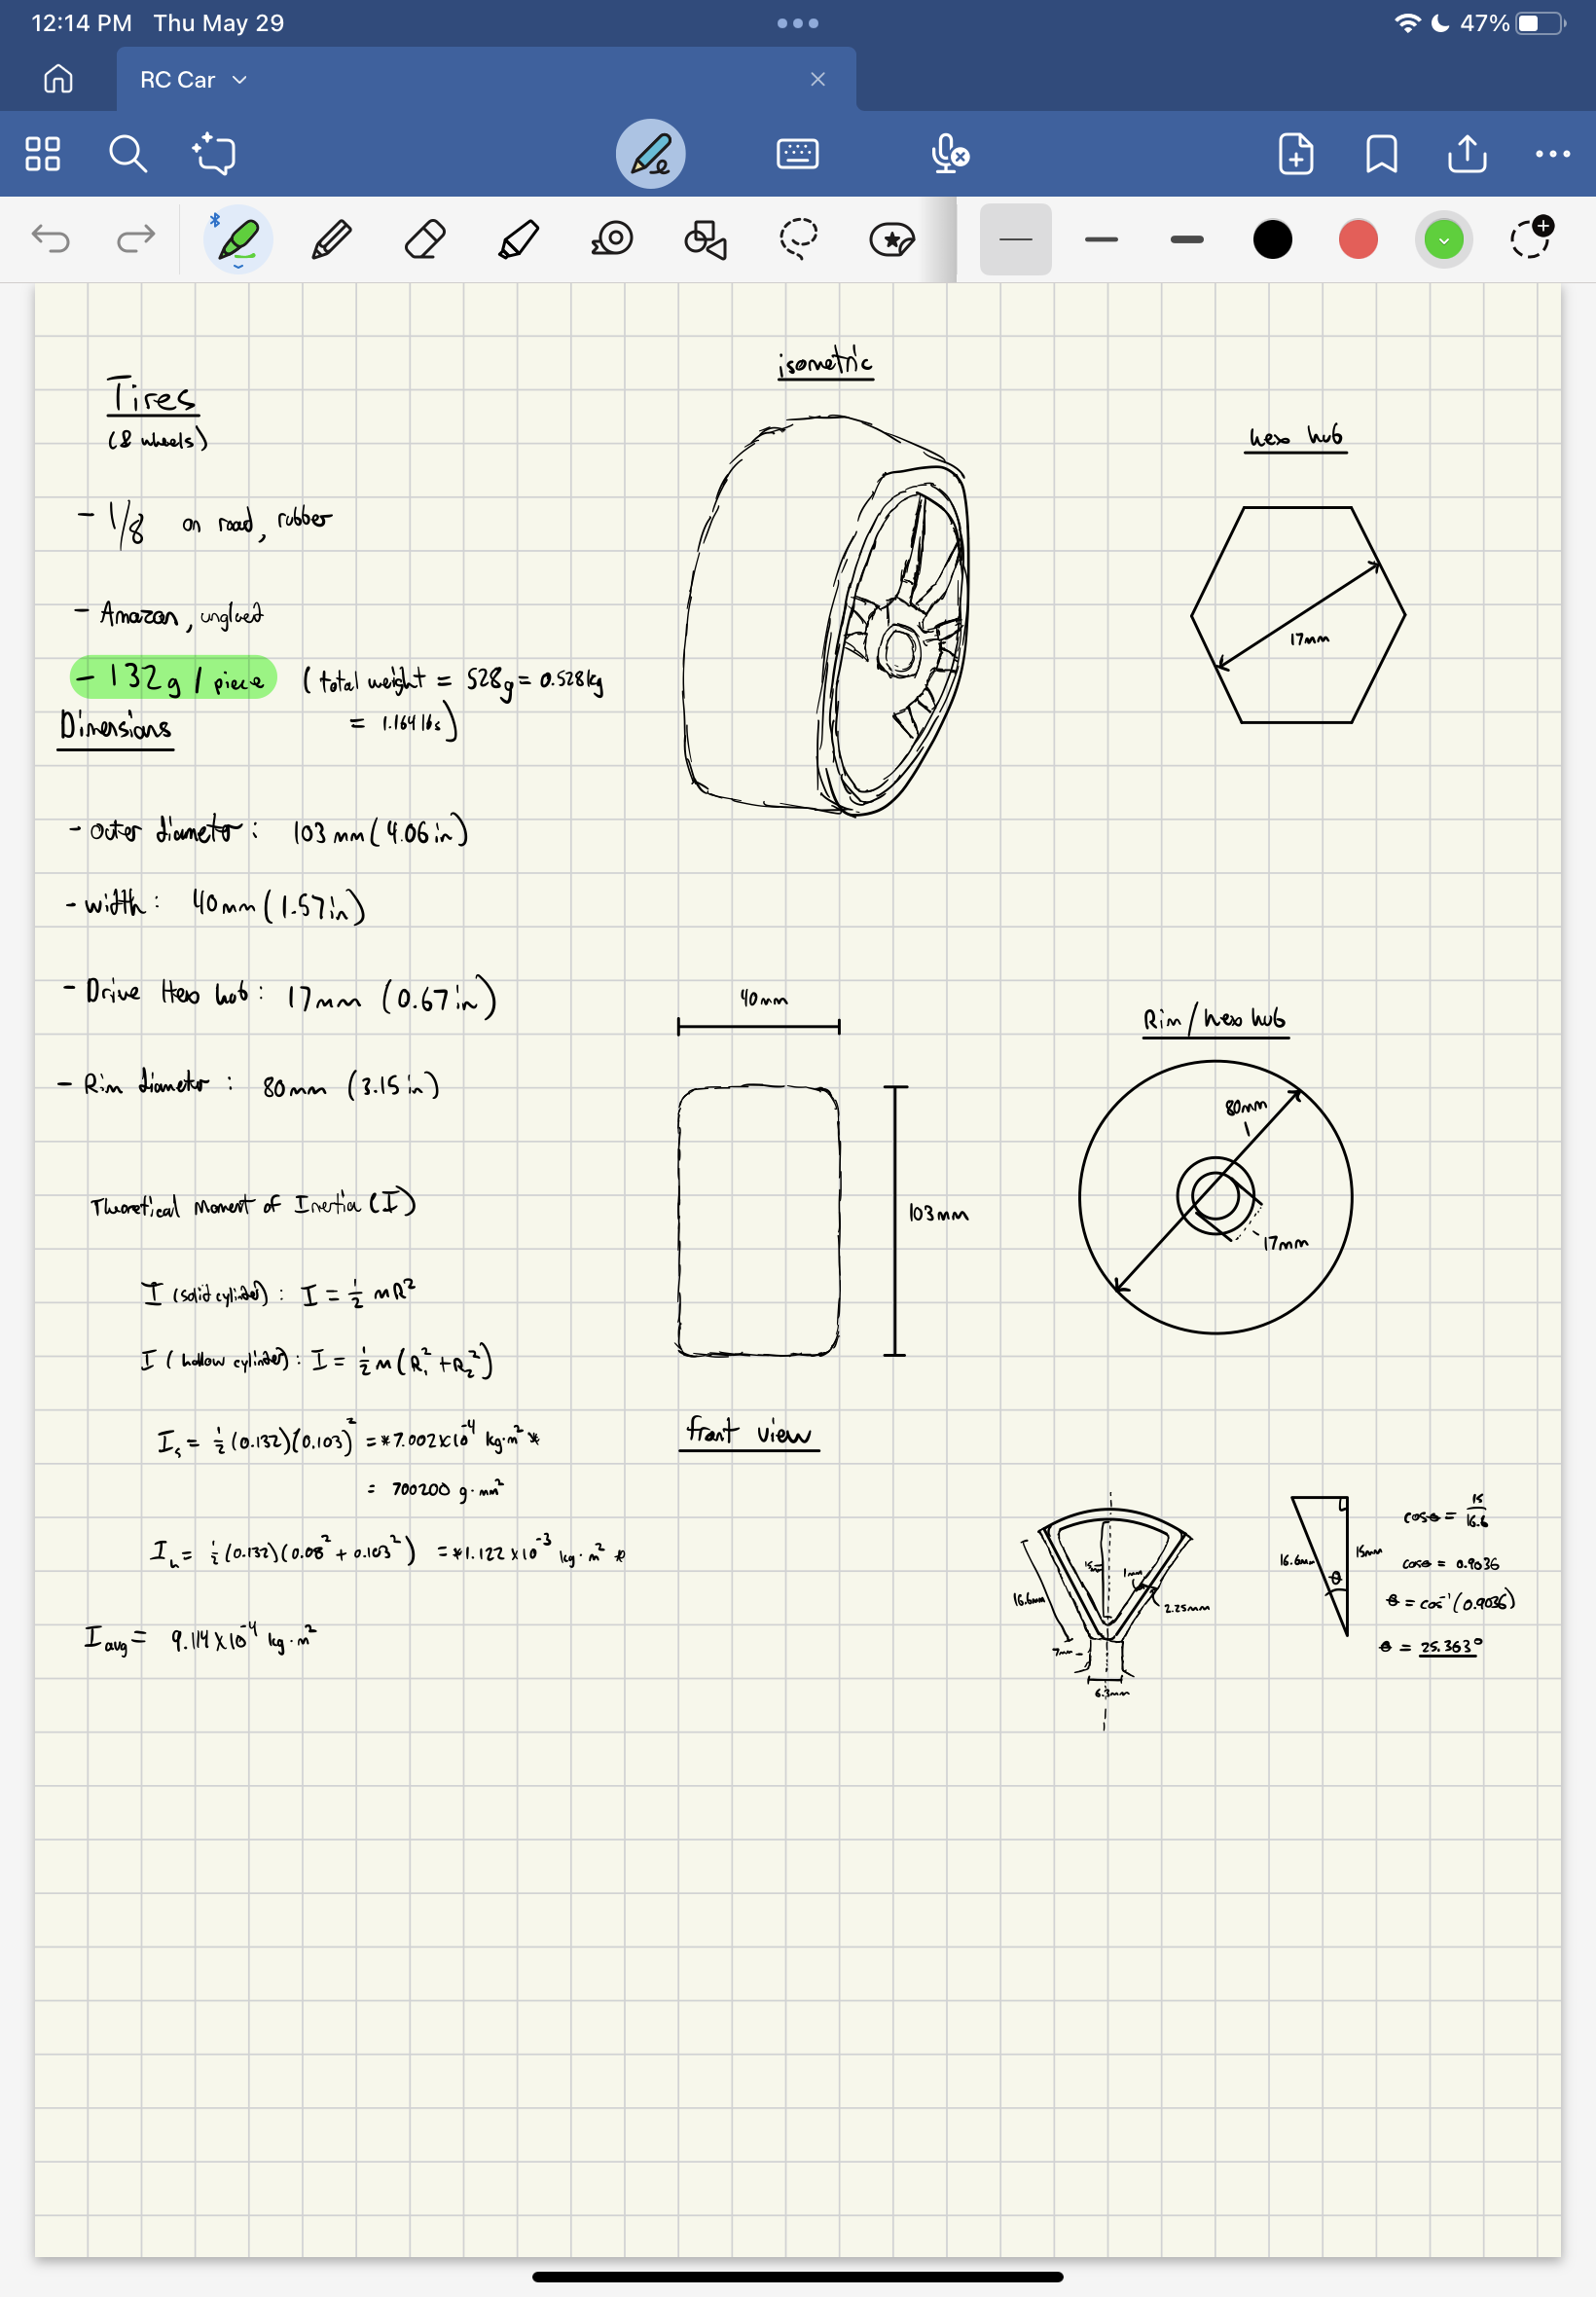 12:14 PM Thu May 29
47%
RC Car
Tires
(& wheels)
- 1/8 on road, rubber
- Amazon, unglued
- 132g / piece (total weight = 528g = 0.528kg
= 1.164 lbs)
Dimensions
- outer diameter: 103 mm (4.06 in)
- width: 40 mm (1.57 in)
- Drive Hex hub: 17mm (0.67 in)
- Rim diameter: 80 mm (3.15 in)
Theoretical Moment of Inertia (I)
I (solid cylinder): I = 1/2 mR²
I (hollow cylinder): I = 1/2 m(R₁² + R₂²)
Iₛ = 1/2 (0.132)(0.103)² = *7.002x10⁻⁴ kg·m² *
= 700200 g·mm²
Iₕ = 1/2 (0.132)(0.08² + 0.103²) = *1.122 x10⁻³ kg·m² *
I avg = 9.114 x10⁻⁴ kg·m²
isometric
hex hub
17mm
40mm
103mm
front view
Rim/hex hub
80mm
17mm
16.6mm
1mm
2.25mm
7mm
6.3mm
16.6mm
15mm
θ
cosθ = 15/16.6
cosθ = 0.9036
θ = cos⁻¹(0.9036)
θ = 25.363°